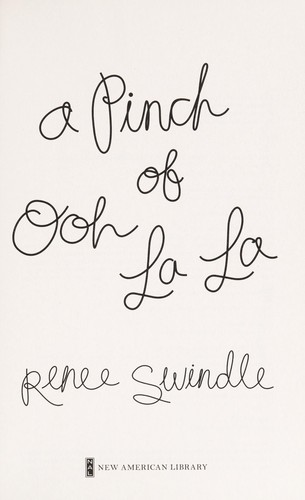 a Pinch
of
Ooh
La La
Renee Swindle
NAL NEW AMERICAN LIBRARY